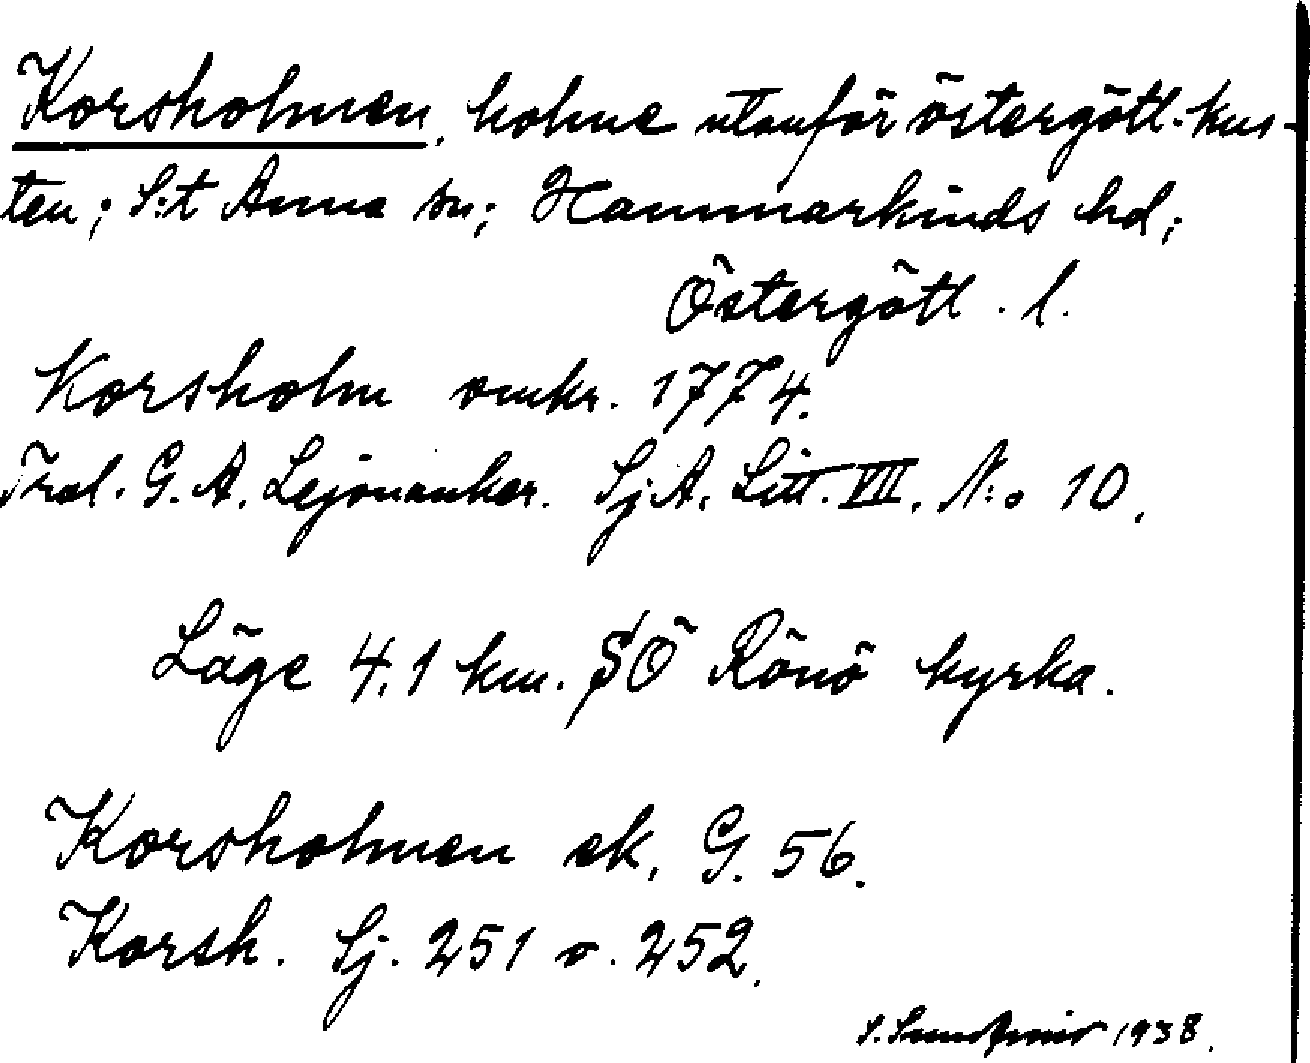 Korsholmen, holme utanför östergötl. kus-
ten; S:t Anna sn; Hammarkinds hd;
Östergötl. l.
Korsholm omkr. 1774.
G. A. Lejonanker. Sj.A. Litt. VIII. N:o 10.
Läge 4.1 km. SÖ Rönö kyrka.
Korsholmen ek. G. 56.
Korsh. Sj. 251 o. 252.
S. 1938.